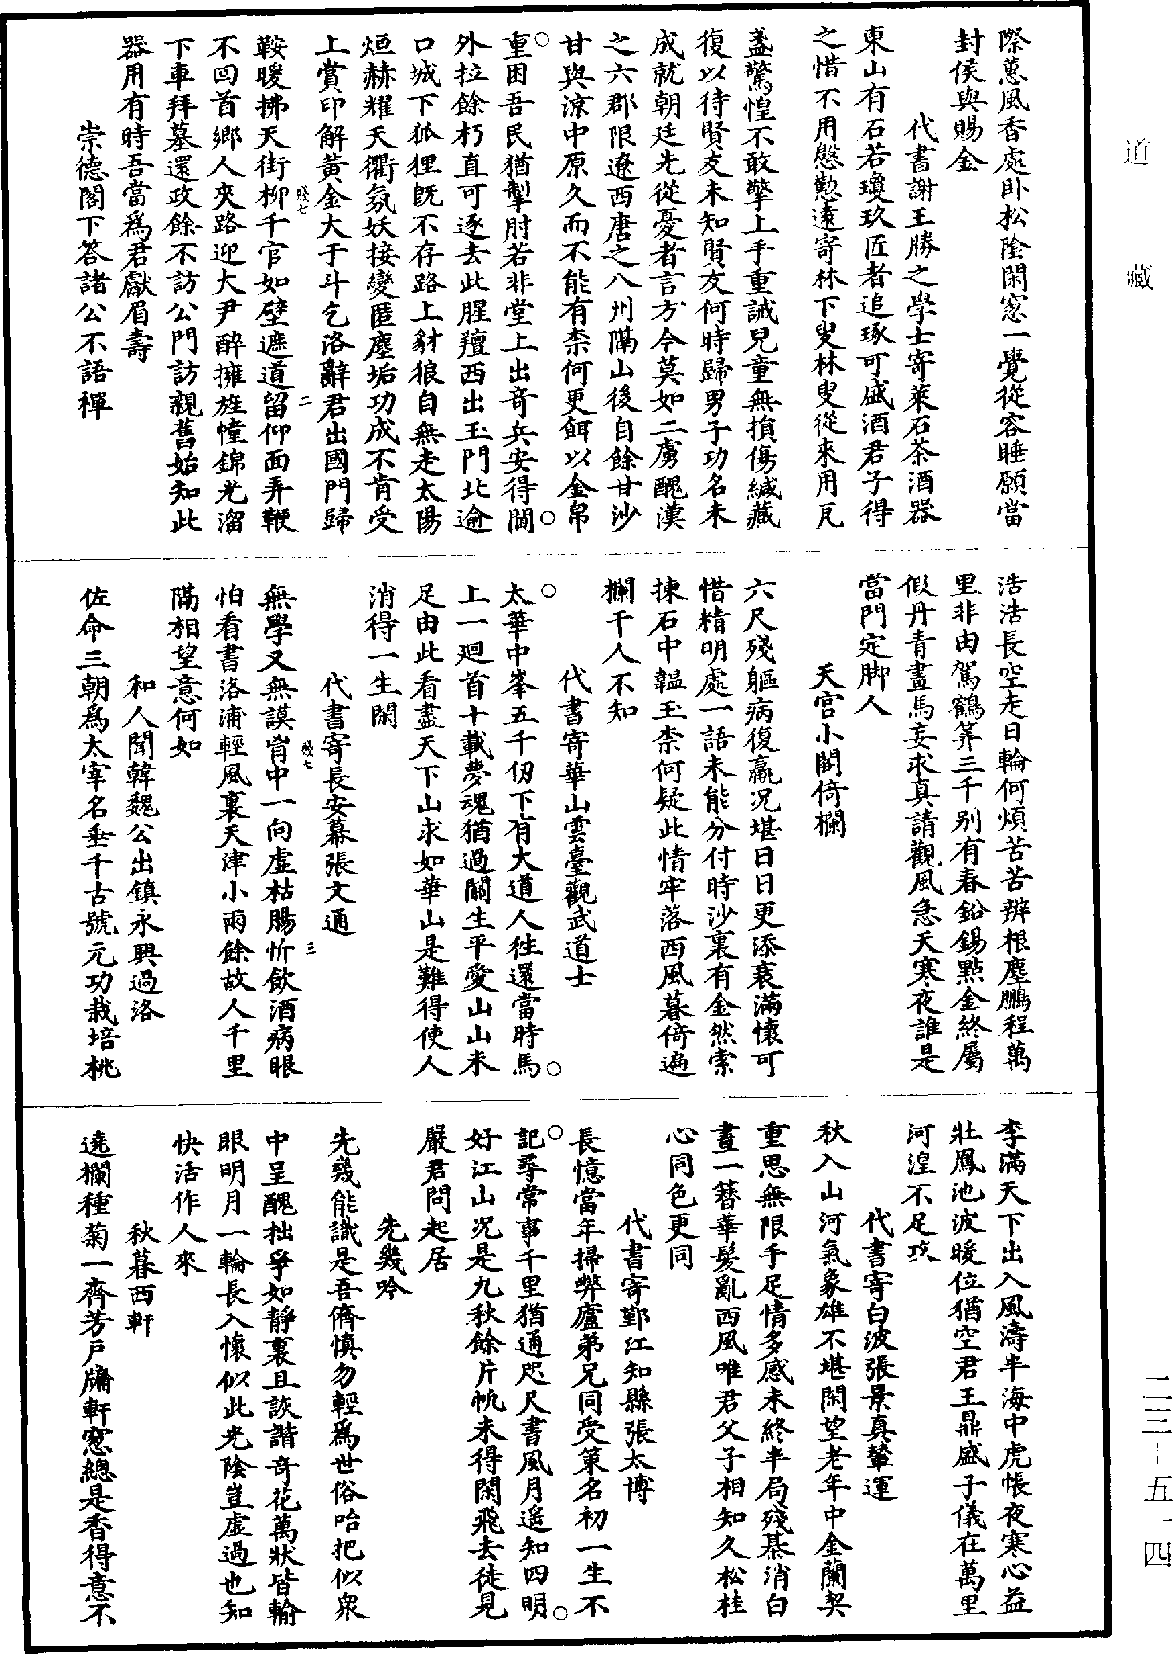 道藏
際蕙風香處卧松陰閑窓一覺從容睡願當
封侯與賜金
代書謝王勝之學士寄萊石茶酒器
東山有石若瓊玖匠者追琢可盛酒君子得
之惜不用慇懃遠寄林下叟林叟從來用瓦
盞驚惶不敢擎上手重誡兒童無損傷緘藏
復以待賢友未知賢友何時歸男子功名未
成就朝廷先從憂者言方今莫如二虜醜漢
之六郡限遼西唐之八州隔山後自餘甘沙
甘與涼中原久而不能有柰何更餌以金帛
重困吾民猶掣肘若非堂上出奇兵安得閫
外拉餘朽直可逐去此腥羶西出玉門北逾
口城下狐狸旣不存路上豺狼自無走太陽
烜赫耀天衢氛妖接變匿塵垢功成不肯受
上賞印解黃金大于斗乞洛辭君出國門歸
鞍曖拂天街柳千官如壁遮道留仰面弄鞭
不回首鄉人夾路迎大尹醉擁旌幢錦光溜
下車拜墓還政餘不訪公門訪親舊始知此
器用有時吾當爲君獻眉壽
崇德閣下答諸公不語禪
浩浩長空走日輪何煩苦苦辨根塵鵬程萬
里非由駕鶴筭三千别有春鉛錫點金終屬
假丹青畫馬妄求真請觀風急天寒夜誰是
當門定脚人
天宮小閣倚欄
六尺殘軀病復羸況堪日日更添衰滿懷可
惜精明處一語未能分付時沙裏有金然索
揀石中韞玉柰何疑此情牢落西風暮倚遍
欄干人不知
代書寄華山雲臺觀武道士
太華中峯五千仞下有大道人往還當時馬
上一廻首十載夢魂猶過關生平愛山山未
足由此看盡天下山求如華山是難得使人
消得一生閑
代書寄長安幕張文通
無學又無謨胷中一向虛枯腸忻飲酒病眼
怕看書洛浦輕風裏天津小雨餘故人千里
隔相望意何如
和人聞韓魏公出鎮永興過洛
佐命三朝爲太宰名垂千古號元功栽培桃
李滿天下出入風濤半海中虎帳夜寒心益
壯鳳池波暖位猶空君王鼎盛子儀在萬里
河湟不足攻
代書寄白波張景真輦運
秋入山河氣象雄不堪閑望老年中金蘭契
重思無限手足情多感未終半局殘棊消白
晝一簪華髮亂西風唯君父子相知久松桂
心同色更同
代書寄鄞江知縣張太博
長憶當年掃弊廬弟兄同受策名初一生不
記尋常事千里猶通咫尺書風月遥知四明
好江山況是九秋餘片帆未得閑飛去徒見
嚴君問起居
先幾吟
先幾能識是吾儕慎勿輕爲世俗咍把似衆
中呈醜拙爭如静裏且詼諧奇花萬狀皆輸
眼明月一輪長入懷似此光陰豈虛過也知
快活作人來
秋暮西軒
遶欄種菊一齊芳戶牖軒窓總是香得意不
二三-五一四